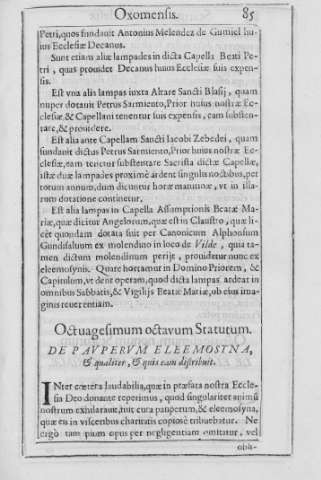 Oxomensis. 85
Petri, quos fundauit Antonius Melendez de Gumiel huius
ius Ecclesiæ Decanus.
Sunt etiam aliæ lampades in dicta Capella Beati Pe-
tri, quas prouidet Decanus huius Ecclesiæ suis expen-
sis.
Est vna alis lampas iuxta Altare Sancti Blasij, quam
nuper dotauit Petrus Sarmiento, Prior huius nostræ Ec-
clesiæ, & Capellani tenentur suis expensis, eam substen-
tare, & prouidere.
Est alia ante Capellam Sancti Iacobi Zebedei, quam
fundauit dictus Petrus Sarmiento, Prior huius nostræ Ec-
clesiæ, eam tenetur substentare Sacrista dictæ Capellæ,
istæ duæ lampades proximè ardent singulis noctibus, per
totum annum, dum dicuntur horæ matutinæ, vt in illa-
rum dotatione continetur,
Est alia lampas in Capella Assumptionis Beatæ Ma-
riæ, quæ dicitur Angelorum, quæ est in Claustro, quæ li-
cèt quondam dotata fuit per Canonicum Alphonsum
Gundisaluum ex molendino in loco de Vilde, quia ta-
men dictum molendinum perijt, prouidetur nunc ex
eleemosynis. Quare hortamur in Domino Priorem, &
Capitulum, vt dent operam, quod dicta lampas ardeat in
omnibus Sabbatis, & Vigilijs Beatæ Mariæ, ob eius ima-
ginis reuerentiam.
Octuagesimum octauum Statutum.
DE PAVPERVM ELEEMOSTNA,
& qualiter, & quis eam distribuit.
INter cœtera laudabilia, quæ in præfata nostra Eccle-
sia Deo donante reperimus, quod singulariter animũ
nostrum exhilarauit, fuit cura pauperum, & eleemosyna,
quæ eis in visceribus charitatis copiosè tribuebatur. Ne
ergò tam pium opus per negligentiam omittatur, vel
obli-